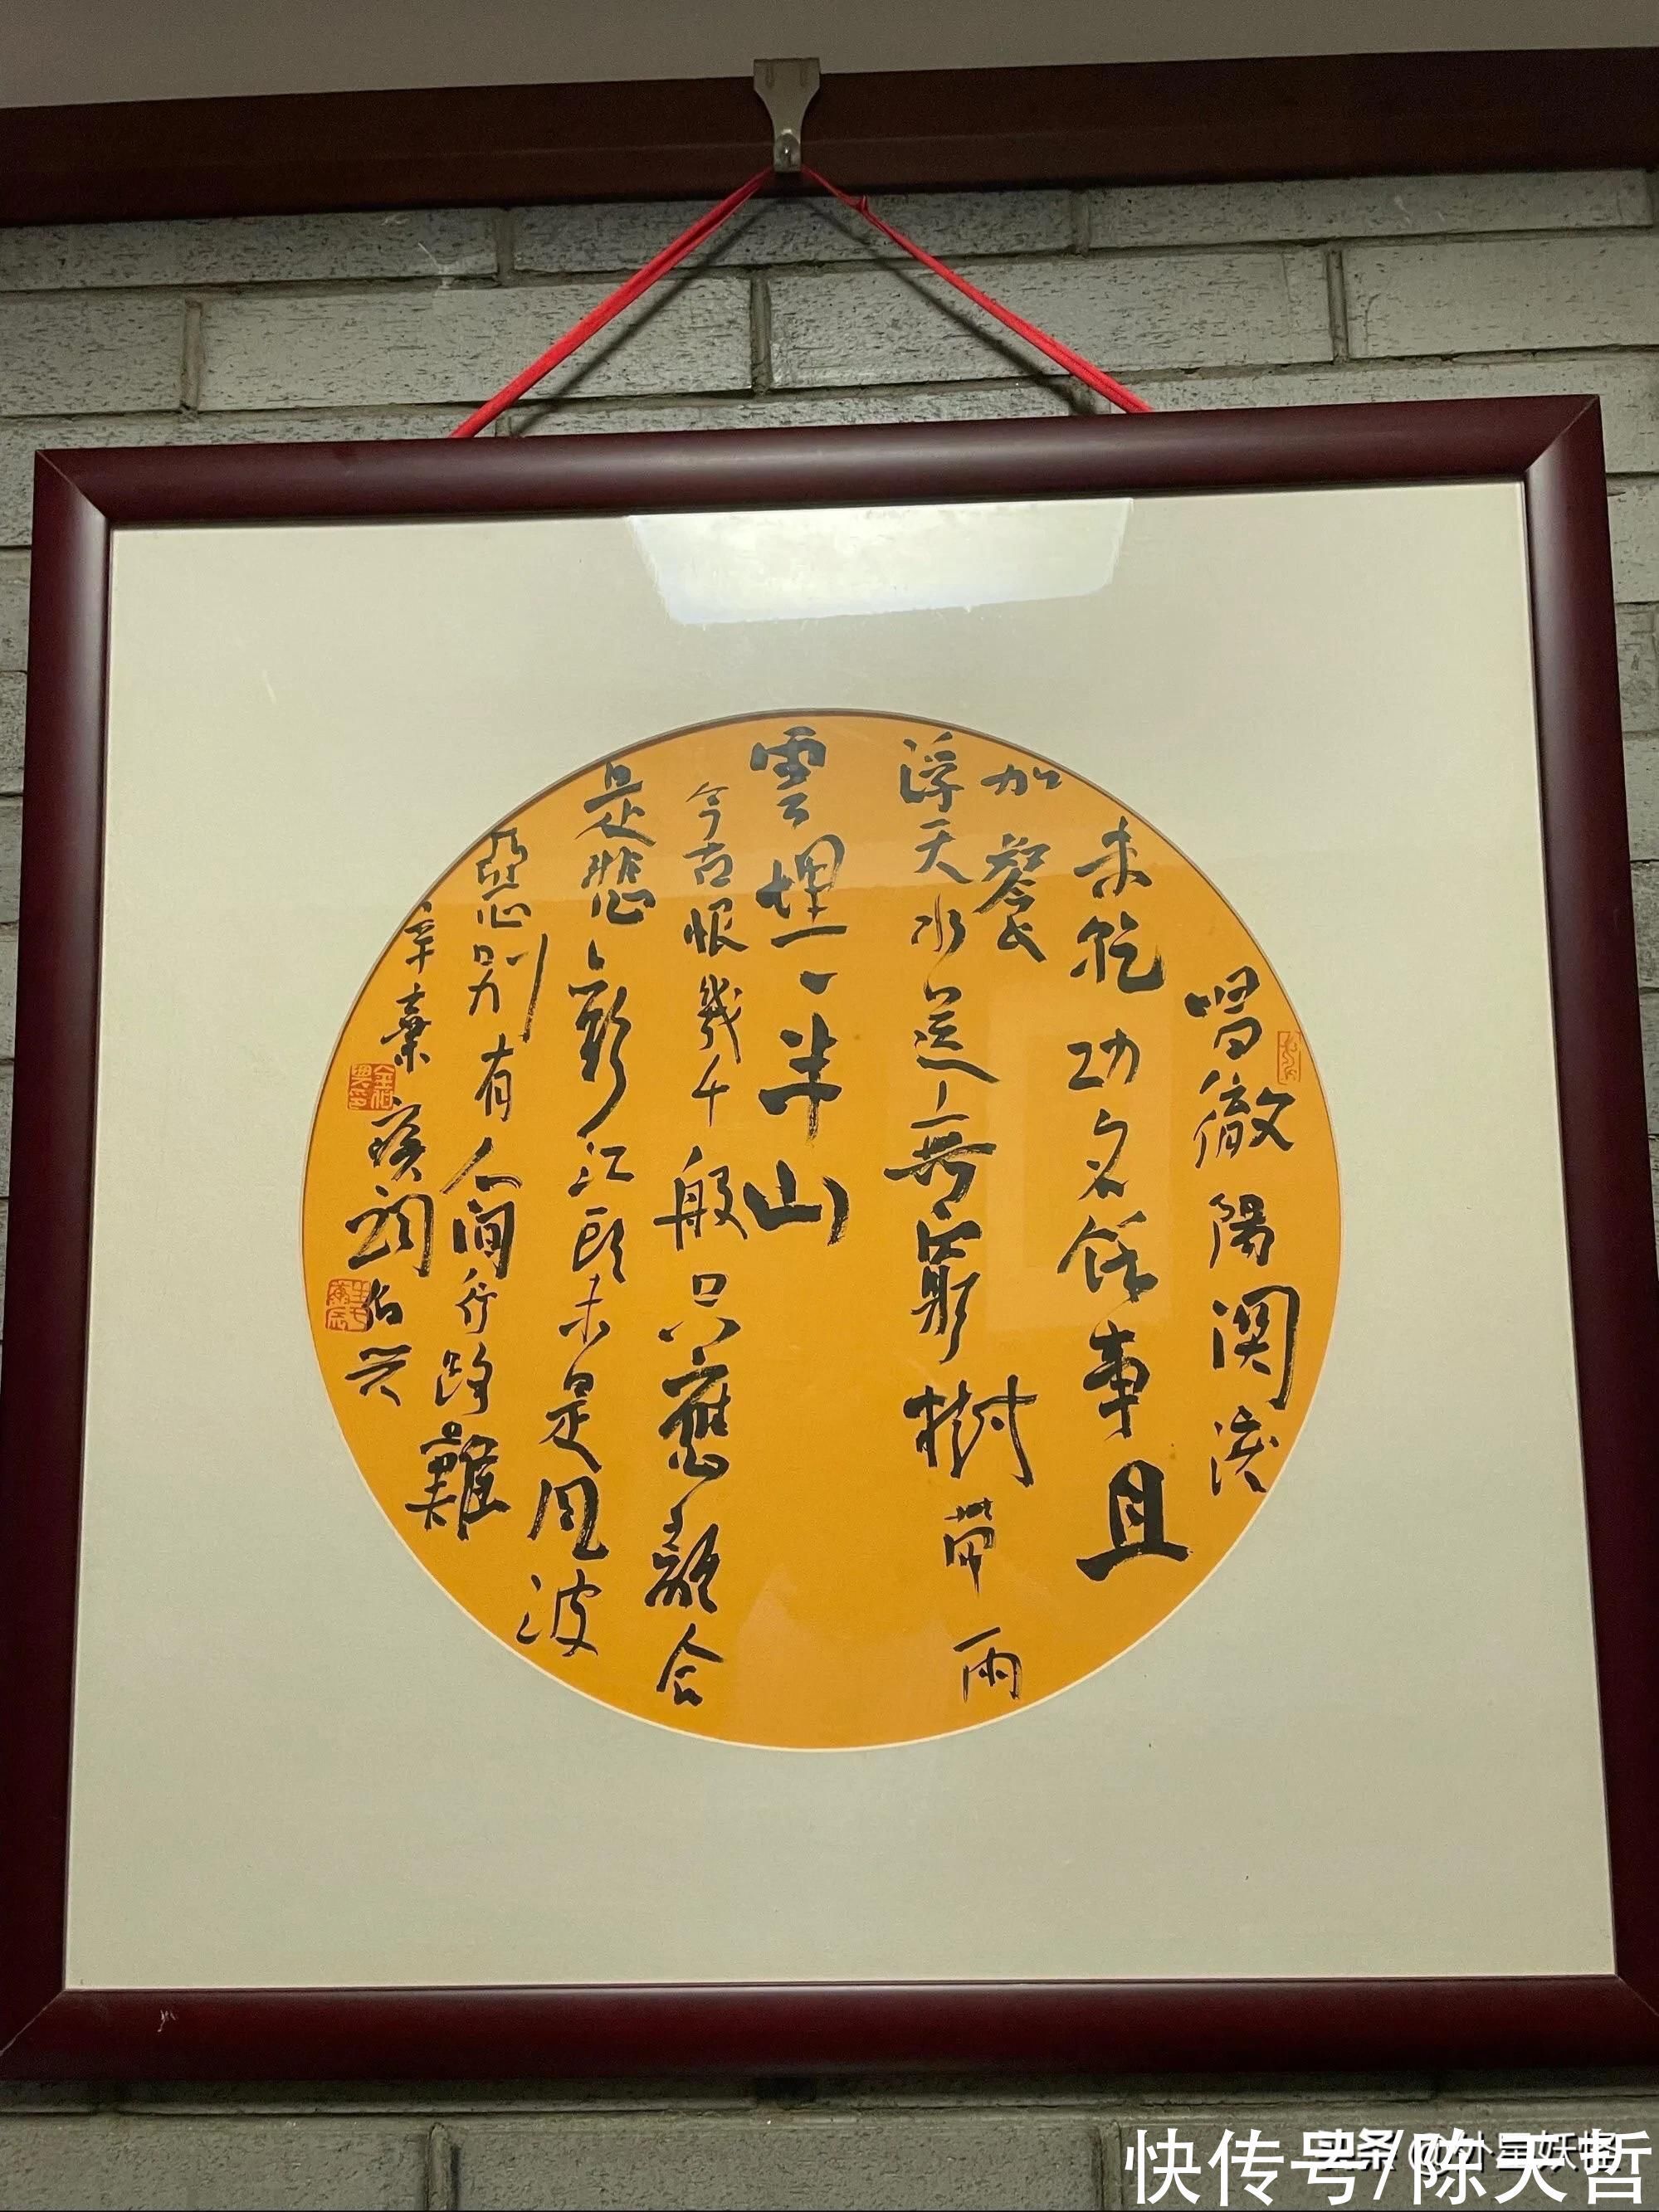 唱徹陽関淚
未乾功名餘事且
加餐
浮天水送無窮樹帶雨
雲埋一半山
今古恨幾千般只應離合
是悲歡江頭未是風波
惡別有人間行路難
辛棄疾詞伯兴
快传号/陈天哲